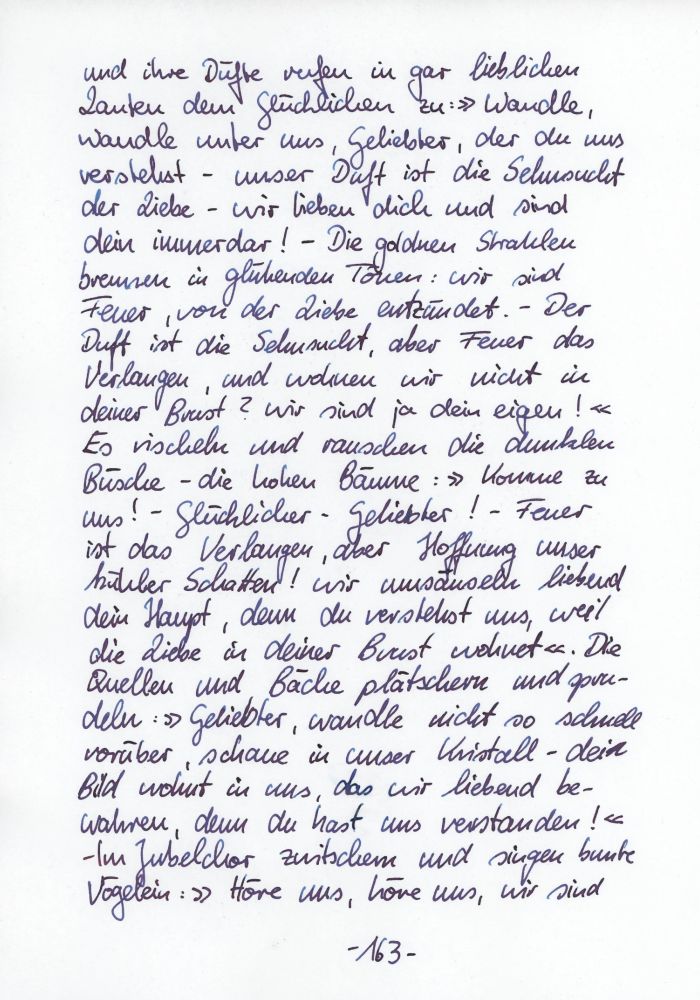 und ihre Düfte rufen in gar lieblichen
Lauten dem Glücklichen zu: »Wandle,
wandle unter uns, Geliebter, der du uns
verstehst – unser Duft ist die Sehnsucht
der Liebe – wir lieben dich und sind
dein immerdar! – Die goldnen Strahlen
brennen in glühenden Tönen: wir sind
Feuer, von der Liebe entzündet. – Der
Duft ist die Sehnsucht, aber Feuer das
Verlangen, und wohnen wir nicht in
deiner Brust? wir sind ja dein eigen!«
Es rischeln und rauschen die dunklen
Büsche – die hohen Bäume: »Komme zu
uns! – Glücklicher – Geliebter! – Feuer
ist das Verlangen, aber Hoffnung unser
kühler Schatten! wir umsäuseln liebend
dein Haupt, denn du verstehst uns, weil
die Liebe in deiner Brust wohnet«. Die
Quellen und Bäche plätschern und spru-
deln: »Geliebter, wandle nicht so schnell
vorüber, schaue in unser Kristall – dein
Bild wohnt in uns, das wir liebend be-
wahren, denn du hast uns verstanden!«
– Im Jubelchor zwitschern und singen bunte
Vögelein: »Höre uns, höre uns, wir sind
-163-